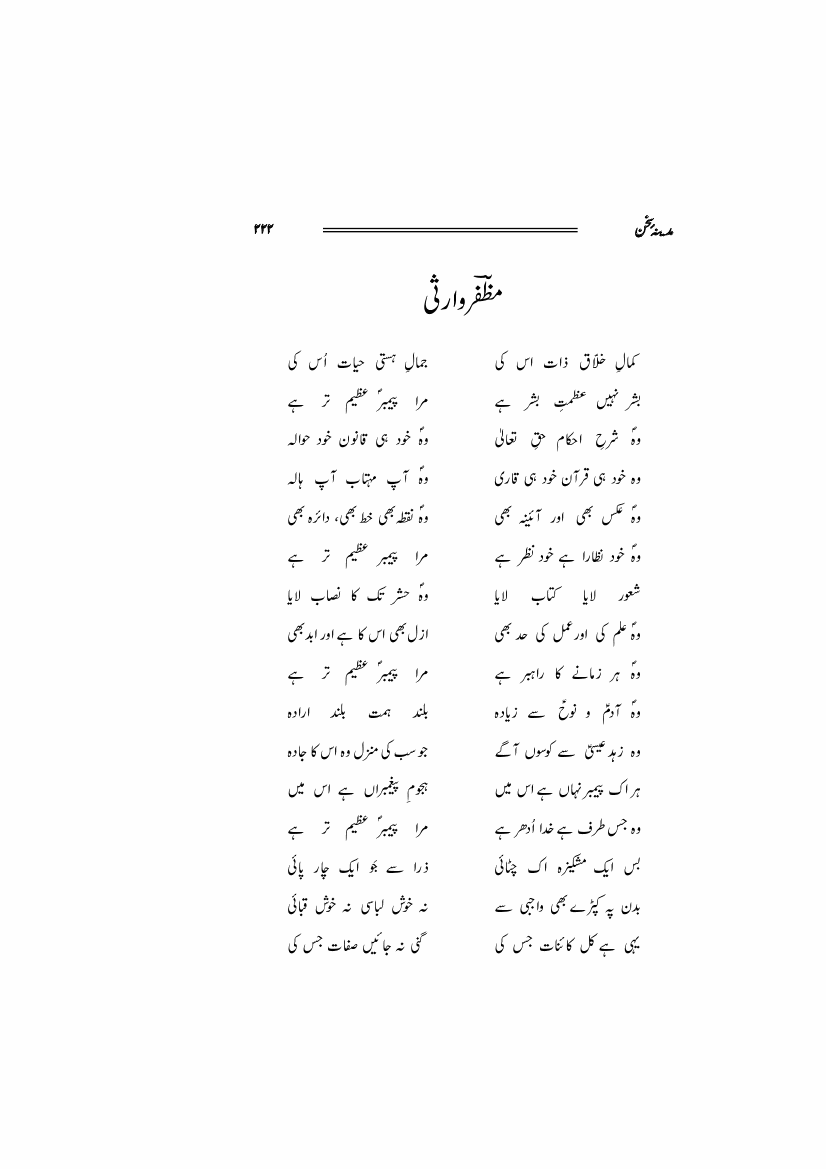 مدینۂ سخن ۲۲۲
مظفّر وارثی
کمالِ خلّاق ذات اس کی جمالِ ہستی حیات اُس کی
بشر نہیں عظمتِ بشر ہے مرا پیمبرؐ عظیم تر ہے
وہؐ شرحِ احکام حقِ تعالیٰ وہؐ خود ہی قانون خود حوالہ
وہ خود ہی قرآن خود ہی قاری وہؐ آپ مہتاب آپ ہالہ
وہؐ عکس بھی اور آئینہ بھی وہؐ نقطہ بھی خط بھی، دائرہ بھی
وہؐ خود نظارا ہے خود نظر ہے مرا پیمبر عظیم تر ہے
شعور لایا کتاب لایا وہؐ حشر تک کا نصاب لایا
وہؐ علم کی اور عمل کی حد بھی ازل بھی اس کا ہے اور ابد بھی
وہؐ ہر زمانے کا راہبر ہے مرا پیمبرؐ عظیم تر ہے
وہؐ آدمؑ و نوحؑ سے زیادہ بلند ہمت بلند ارادہ
وہ زہد عیسیٰؑ سے کوسوں آگے جو سب کی منزل وہ اس کا جادہ
ہر اک پیمبر نہاں ہے اس میں ہجومِ پیغمبراں ہے اس میں
وہ جس طرف ہے خدا اُدھر ہے مرا پیمبرؐ عظیم تر ہے
بس ایک مشکیزہ اک چٹائی ذرا سے جَو ایک چار پائی
بدن پہ کپڑے بھی واجبی سے نہ خوش لباسی نہ خوش قبائی
یہی ہے کل کائنات جس کی گنی نہ جائیں صفات جس کی